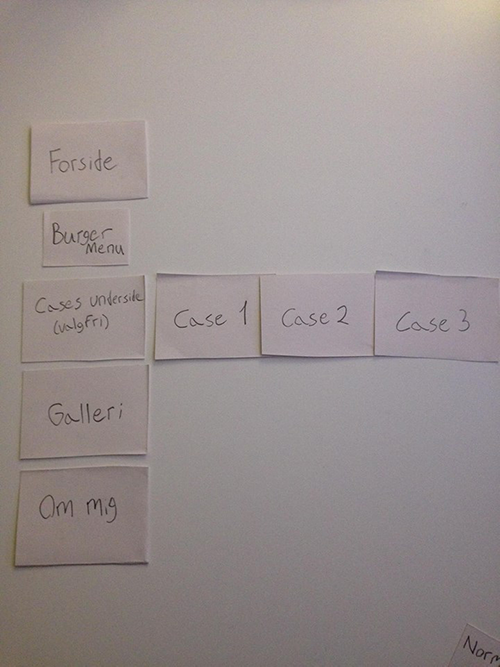 Forside
Burger
Menu
Cases underside
(valgfri)
Case 1
Case 2
Case 3
Galleri
Om mig